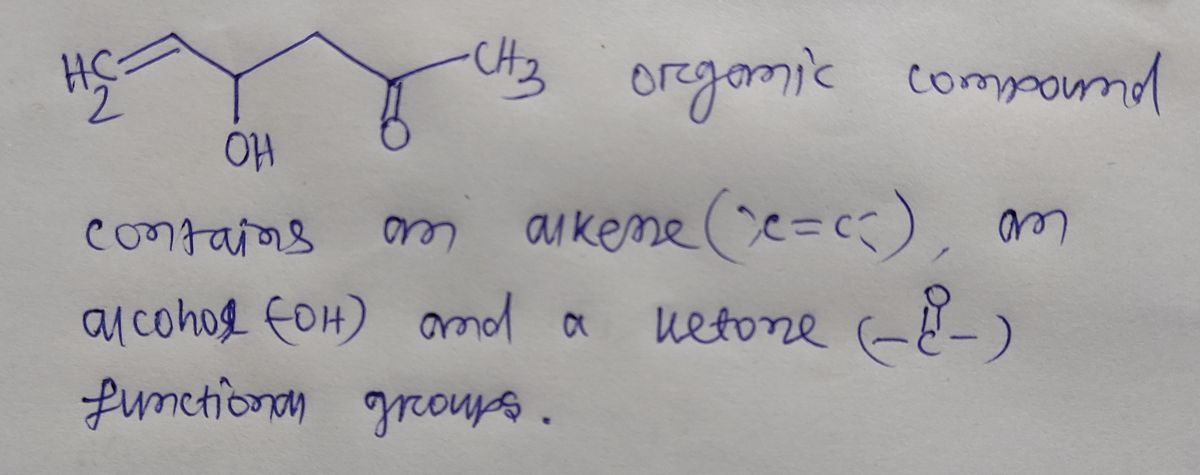 H₂C CH₃ organic compound
OH O
contains an alkene (>C=C<), an
alcohol (-OH) and a ketone (-C-)
O
functional groups.